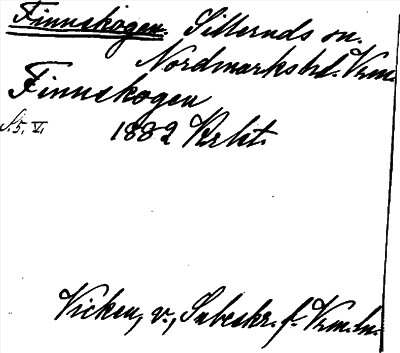 Finnskogen. Silleruds sn.
Nordmarks hd. Vrm.
Finnskogen
S. 5. V. 1882 Krkt.
Vicken, v., Inbeskr. f. Vrm. ln.